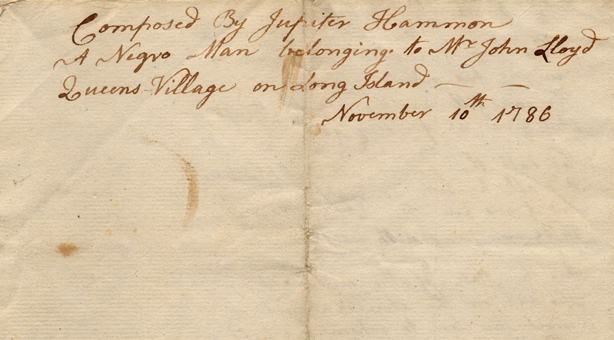 Composed By Jupiter Hammon
A Negro Man belonging to Mr John Lloyd
Queens Village on Long Island — —
November 10th 1786